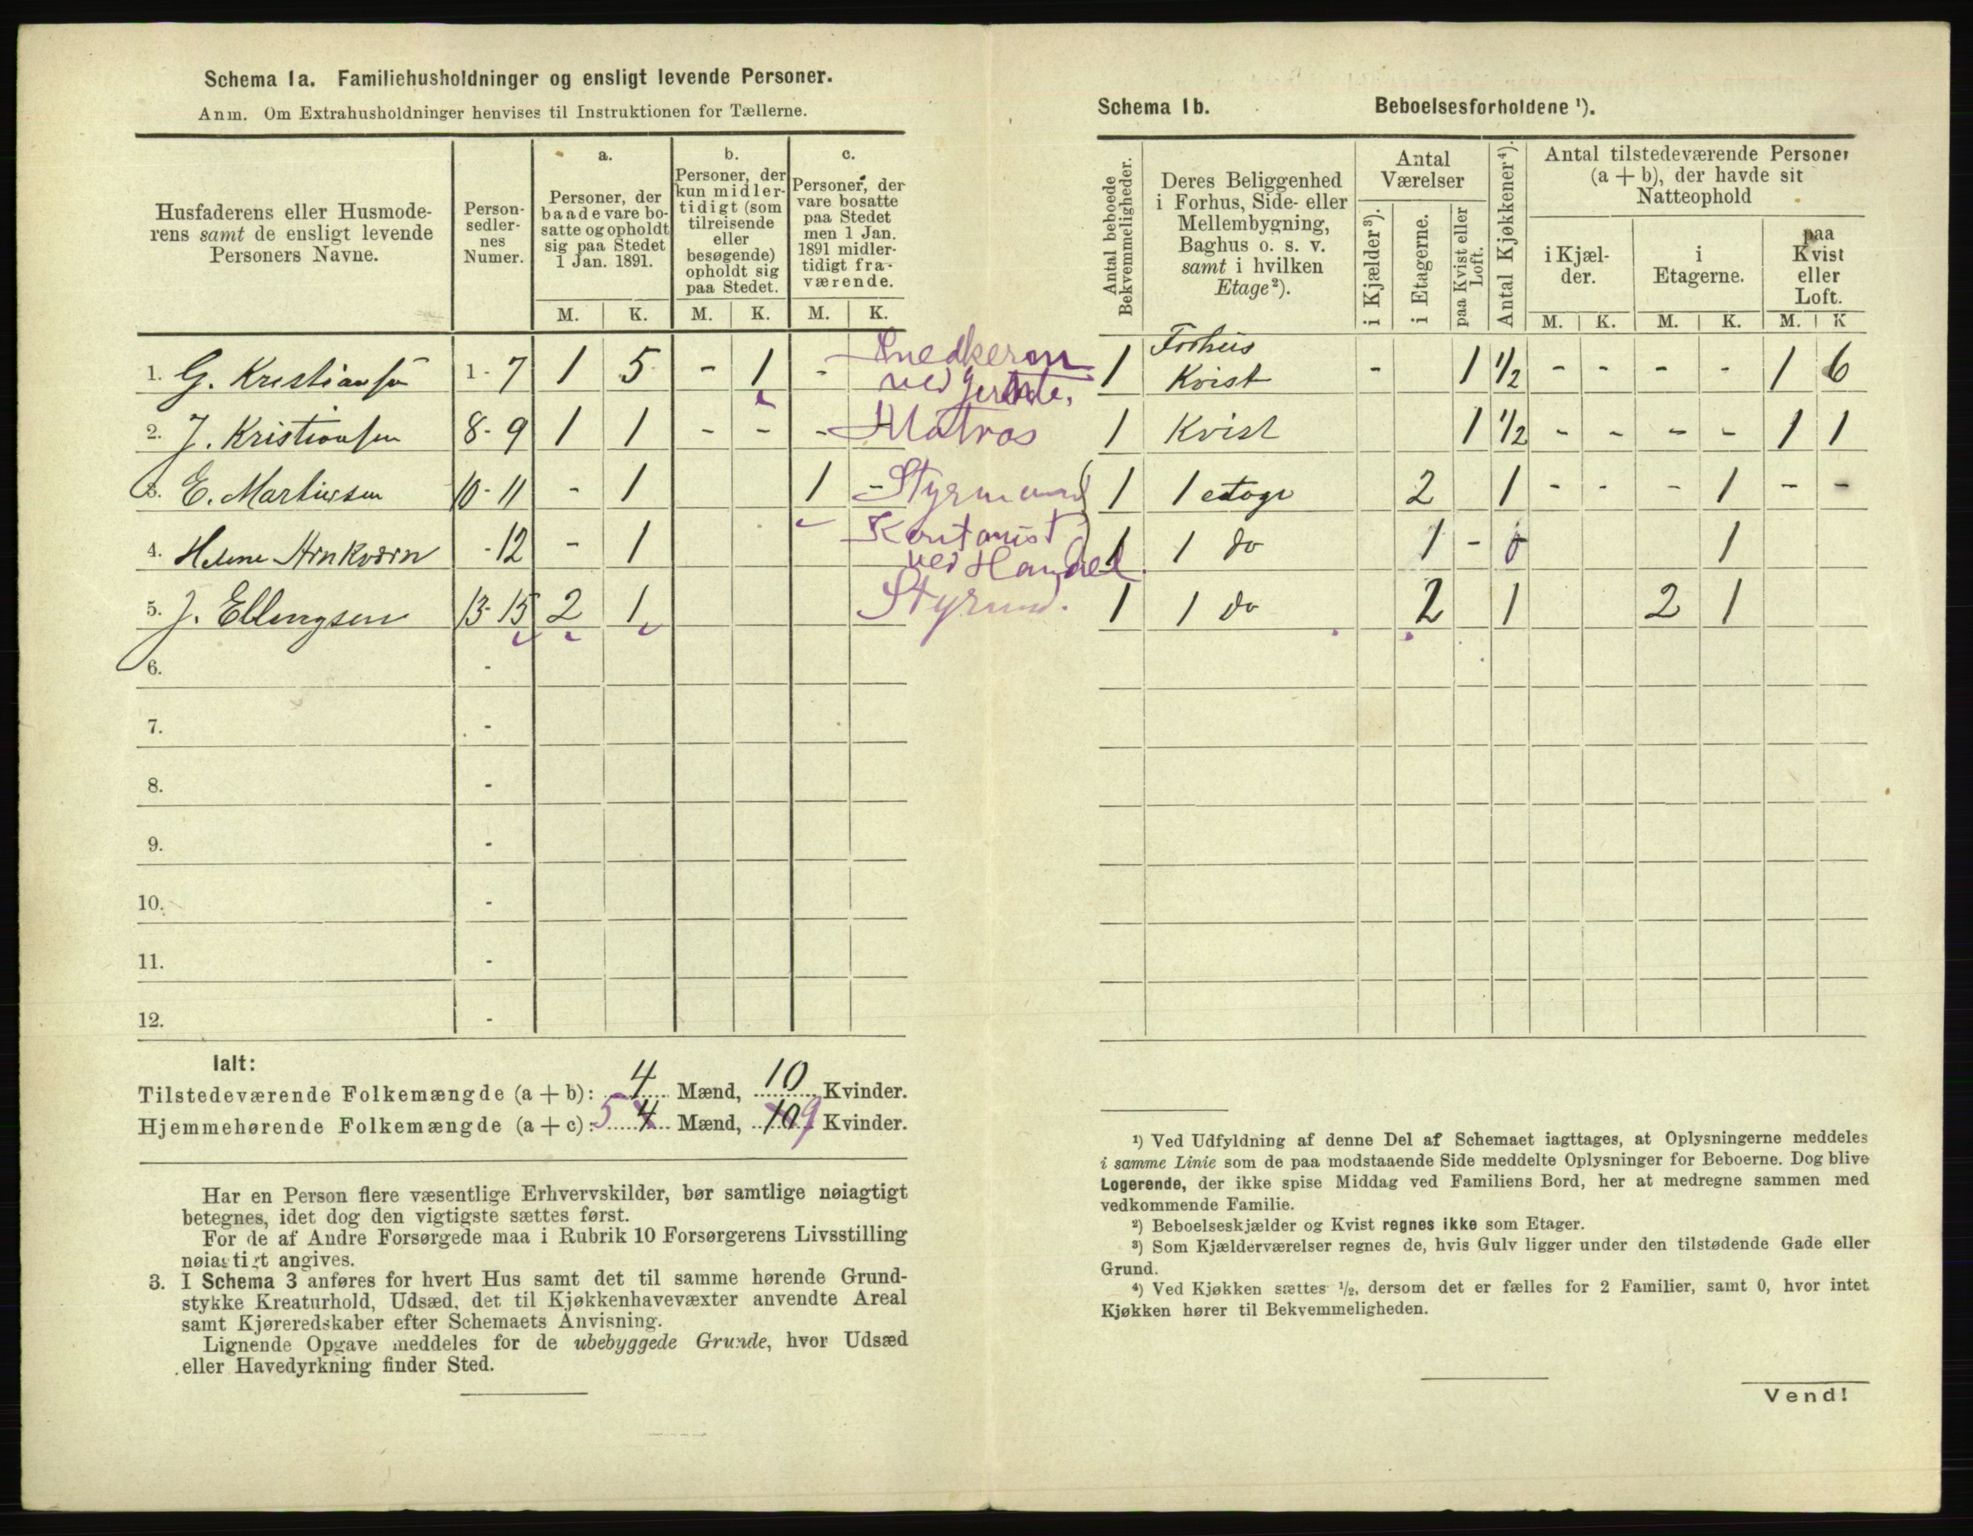 Schema 1a. Familiehusholdninger og ensligt levende Personer.
Anm. Om Extrahusholdninger henvises til Instruktionen for Tællerne.
Husfaderens eller Husmode-
rens samt de ensligt levende
Personers Navne.
Person-
sedler-
nes
Numer.
a.
Personer, der
baade vare bo-
satte og opholdt
sig paa Stedet
1 Jan. 1891.
b.
Personer, der
kun midler-
tidigt (som
tilreisende
eller
besøgende)
opholdt sig
paa Stedet.
c.
Personer, der
vare bosatte
paa Stedet
men 1 Jan.
1891 midler-
tidigt fra-
værende.
M. K. M. K. M. K.
1. G. Kristiansen 1-7 1 5 - 1 - Snedkersv
ved
2. J. Kristiansen 8-9 1 1 - - - Matros
3. E. Martinsen 10-11 - 1 1 - Styrmand
4. Helene Arnkværn -12 - 1 Kontorist
ved Handel.
5. J. Ellingsen 13-15 2 1 Styrmd.
6. -
7. -
8. -
9. -
10. -
11. -
12. -
Ialt:
Tilstedeværende Folkemængde (a + b): 4 Mænd, 10 Kvinder.
Hjemmehørende Folkemængde (a + c): 5 4 Mænd, 10 9 Kvinder.
Har en Person flere væsentlige Erhvervskilder, bør samtlige nøiagtigt
betegnes, idet dog den vigtigste sættes først.
For de af Andre Forsørgede maa i Rubrik 10 Forsørgerens Livsstilling
nøiagtigt angives.
3. I Schema 3 anføres for hvert Hus samt det til samme hørende Grund-
stykke Kreaturhold, Udsæd, det til Kjøkkenhavevæxter anvendte Areal
samt Kjøreredskaber efter Schemaets Anvisning.
Lignende Opgave meddeles for de ubebyggede Grunde, hvor Udsæd
eller Havedyrkning finder Sted.
Schema 1b. Beboelsesforholdene ¹).
Antal beboede
Bekvemmeligheder.
Deres Beliggenhed
i Forhus, Side- eller
Mellembygning,
Baghus o. s. v.
samt i hvilken
Etage²).
Antal
Værelser
i Kjælder³).
i Etagerne.
paa Kvist eller
Loft.
Antal Kjøkkener⁴).
Antal tilstedeværende Personer
(a + b), der havde sit
Natteophold
i Kjæl-
der.
i
Etagerne.
paa
Kvist
eller
Loft.
M. K. M. K. M. K
1 Forhus
Kvist - 1 1/2 - - - - 1 6
1 Kvist 1 1/2 - - - - 1 1
1 1 etage 2 1 - - - 1 - -
1 1 do 1 - 0 1
1 1 do 2 1 2 1
¹) Ved Udfyldning af denne Del af Schemaet iagttages, at Oplysningerne meddeles
i samme Linie som de paa modstaaende Side meddelte Oplysninger for Beboerne. Dog blive
Logerende, der ikke spise Middag ved Familiens Bord, her at medregne sammen med
vedkommende Familie.
²) Beboelseskjælder og Kvist regnes ikke som Etager.
³) Som Kjælderværelser regnes de, hvis Gulv ligger under den tilstødende Gade eller
Grund.
⁴) Ved Kjøkken sættes ½, dersom det er fælles for 2 Familier, samt 0, hvor intet
Kjøkken hører til Bekvemmeligheden.
Vend!